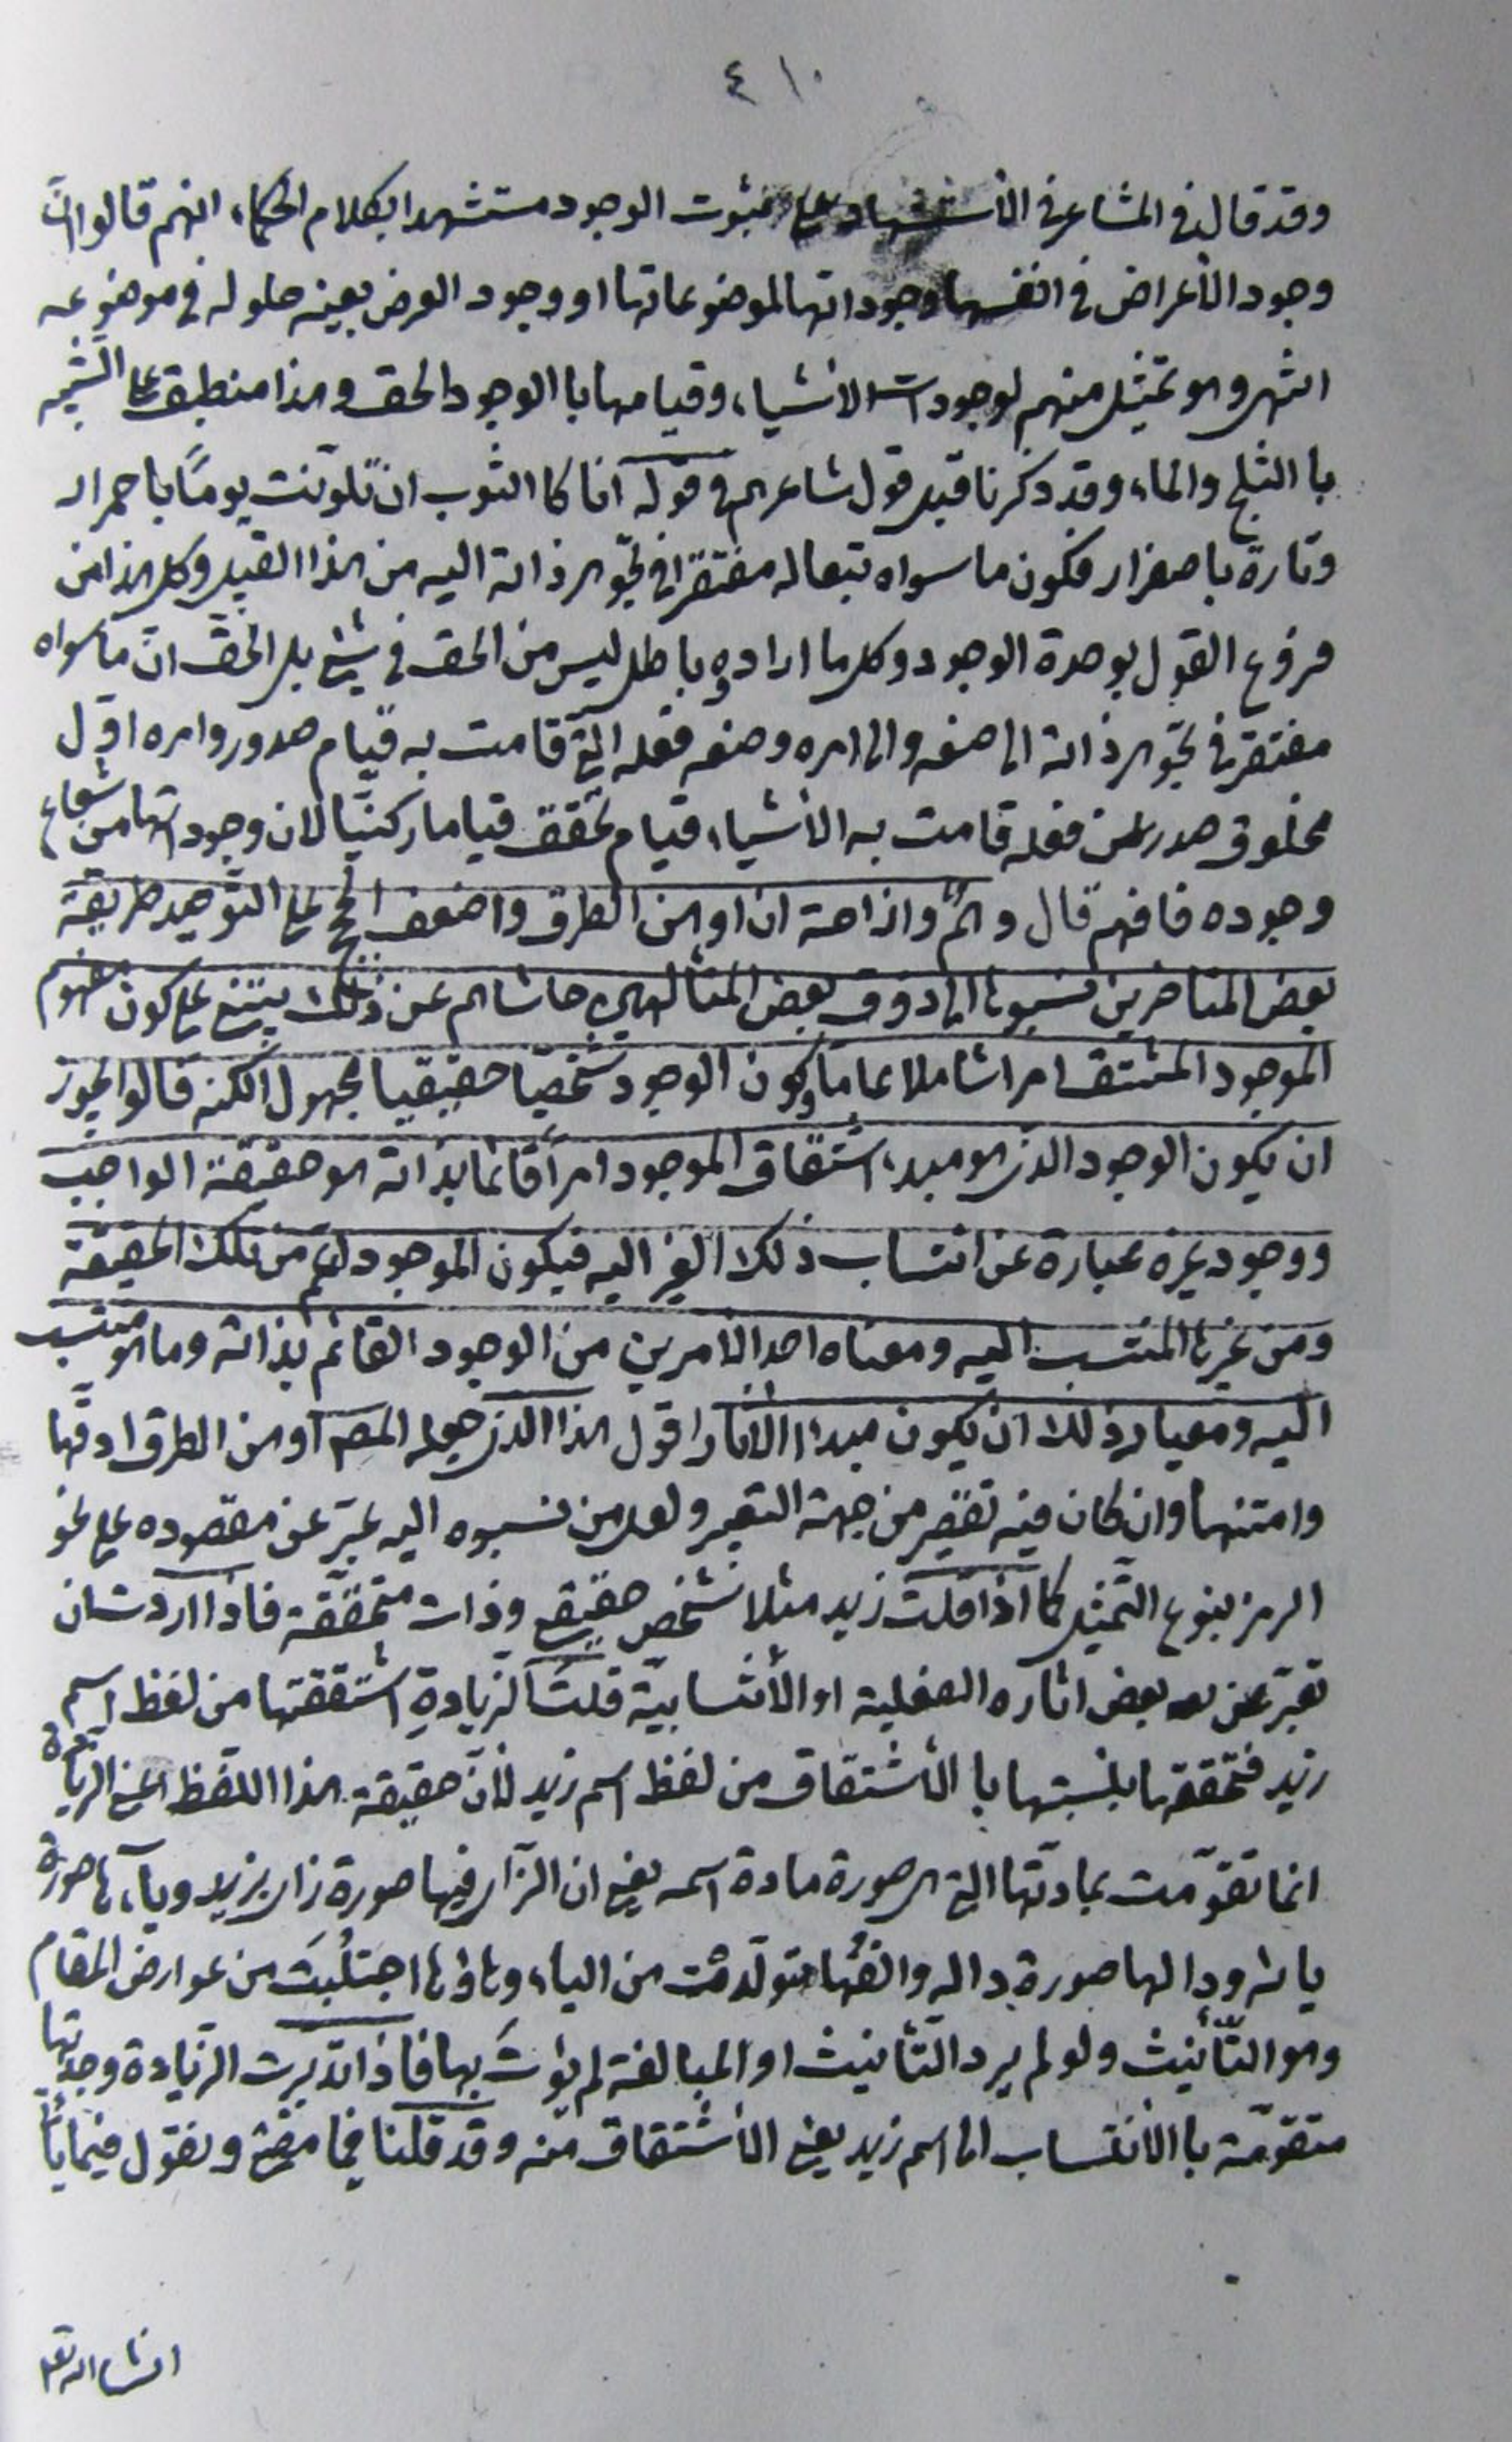 ٤١٠
وقد قال في المشاعر في الأستشهاد على ثبوت الوجود مستشهدا بكلام الحكماء انهم قالوا انّ
وجود الأعراض في انفسها وجوداتها لموضوعاتها او وجود العرض بعينه حلوله في موضوعه
انتهى وهو تمثيل منهم لوجودات الاشياء وقيامها با الوجود الحق وهذا منطبق على التشبيه
با الثلج والماء وقد ذكرنا قبل قول شاعرهم في قوله انا كا الثوب ان تلوّنت يومًا با حمرار
وتارة با صفرار فكون ما سواه تبعا له مفتقرا في تجوهر ذاته اليه من هذا القبيل وكل هذا من
فروع القول بوحدة الوجود وكل ما ارادوه باطل ليس من الحق في شيئ بل الحقّ انّ ما سواه
مفتقر في تجوّهر ذاته الى صنعه والى امره وصنعه فعله الّتي قامت به قيام صدور وامره اوّل
مخلوق صدر عن فعله قامت به الأشياء قيام تحقق قيامًا ركنيّا لان وجوداتها من شعاع
وجوده فافهم قال وهمٌ وازاحة ان اوهن الطرق واضعف الحجج على التّوحيد طريقة
بعض المتاخرين نسبوها الى ذوق بعض المتألهين حاشاهم عن ذلك يبتني على كون مفهوم
الموجود المشتق امرا شاملا عاما وكون الوجود شخصيّا حقيقيا مجهول الكنه قالوا يجوز
ان يكون الوجود الذي هو مبدء اشتقاق الموجود امرا قائما بذاته هو حقيقة الواجب
ووجود غيره عبارة عن انتساب ذلك الغير اليه فيكون الموجود اعمّ من تلك الحقيقة
ومن غيرها المنتسب اليه ومعناه احد الامرين من الوجود القائم بذاته وما هو منتسب
اليه ومعيار ذلك ان يكون مبدء الآثار اقول هذا الذي جعله المص اوهن الطرق ادقّها
وامتنها وان كان فيه تقصير من جهة التعبير ولعل من نسبوه اليه عبّر عن مقصوده على نحو
الرمز بنوع التّمثيل كما اذا قلت زيد مثلا شخص حقيقي وذات متحققة فاذا اردت ان
تعبّر عن بعض اثاره الفعلية او الأنتسابيّة قلتَ الزيادةِ اشتققتها من لفظ اسم
زيد فتحققها بنسبتها با الأشتقاق من لفظ اسم زيد لأنّ حقيقة هذا اللفظ اعني الزيادة
انما تقوّمت بمادتها التي هي صورة مادة اسمه يعني ان الزّاي فيها صورة زاي زيد وياءها صورة
يائه ودالها صورة داله والفها متولّدة من الياء وهاؤها اجتلبت من عوارض المقام
وهو التّأنيث ولو لم يرد التّأنيث او المبالغة لم يؤت بها فاذا تدبرت الزّيادة وجدتها
متقوّمة با الأنتساب الى اسم زيد يعني الأشتقاق منه وقد قلنا فيما مضى ونقول فيما يأتي
انشاء الله تعا